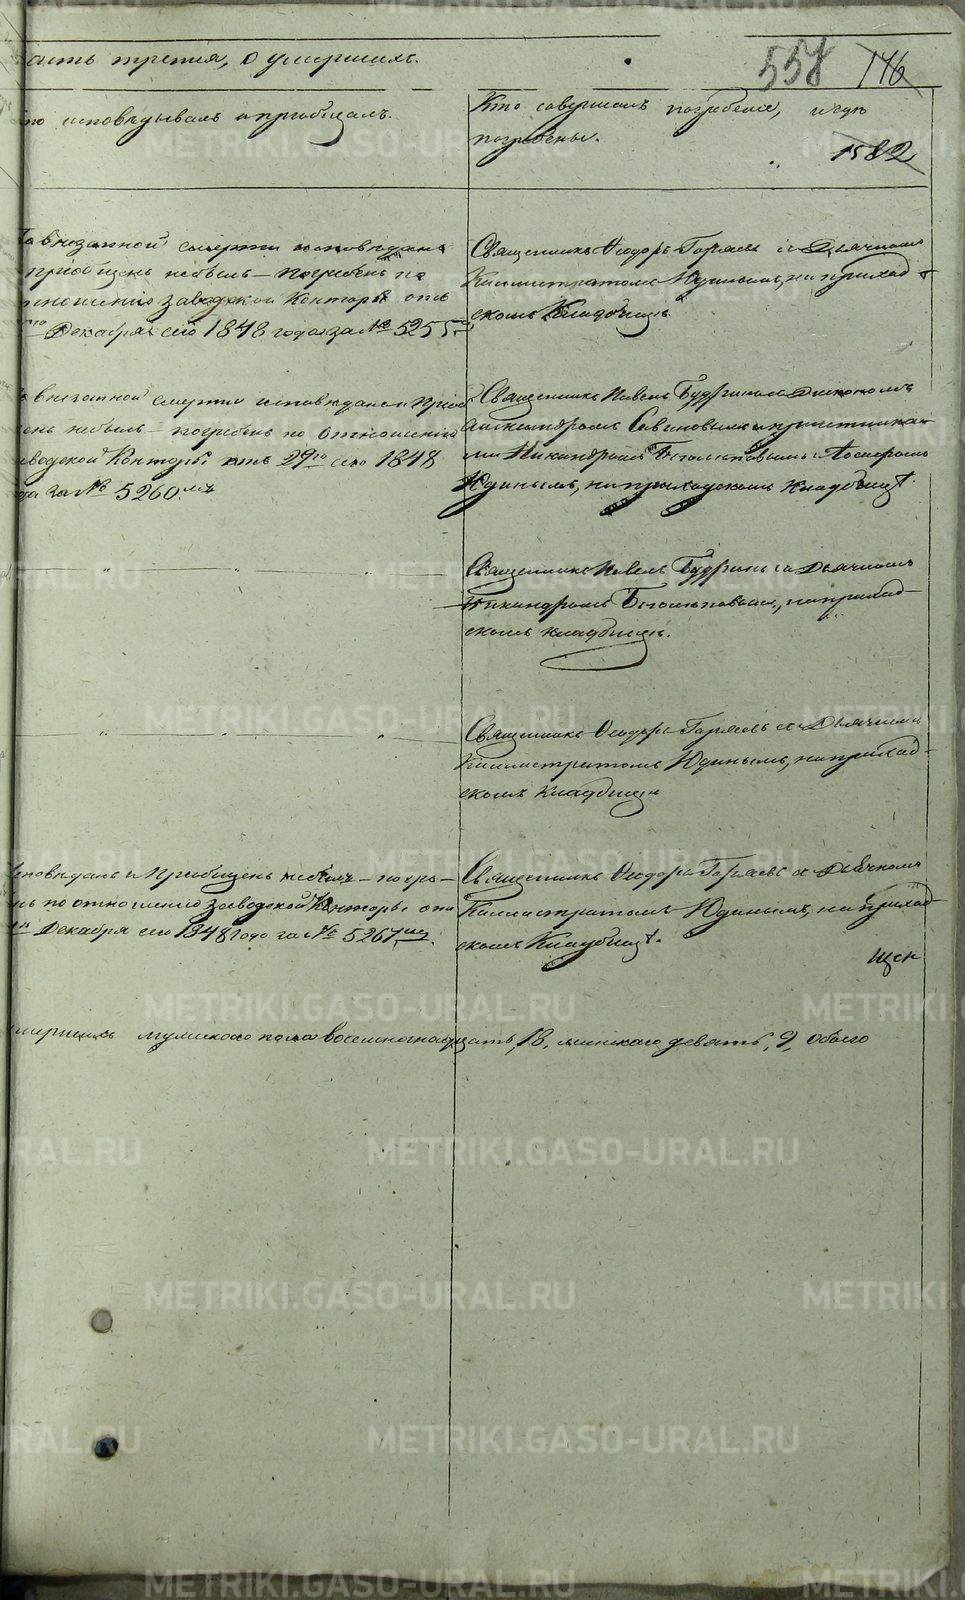 асть третия, о умершихъ.
558 146
то исповѣдывалъ и пріобщалъ.
Кто совершалъ погребеніе, и гдѣ
погребены.
1582
внезапной смерти исповѣданъ
пріобщенъ небылъ – погребенъ по
отношенію заводской Конторы отъ
Декабря сего 1848 года за № 5255
Священникъ Ѳеодоръ Горяевъ съ Дьячкомъ
Каллистратомъ Юдинымъ, на приход-
скомъ Кладбищѣ.
внезапной смерти исповѣданъ и пріоб
енъ небылъ – погребенъ по отношенію
аводской Конторы отъ 29го сего 1848
да за № 5260.мъ
Священникъ Павелъ Будринъ съ Дьякономъ
Александромъ и причетника-
ми Никандромъ и
Юдинымъ, на приходскомъ Кладбищѣ.
Священникъ Павелъ Будринъ съ Дьячкомъ
Никандромъ на приход-
скомъ кладбищѣ.
Священникъ Ѳеодоръ Горяевъ съ Дьячкомъ
Каллистратомъ Юдинымъ, на приход-
скомъ кладбищѣ
сповѣданъ и Пріобщенъ небылъ – погре-
нъ по отношенію заводской Конторы отъ
Декабря сего 1848 года за № 5267
Священникъ Ѳеодоръ Горяевъ съ Дьячкомъ
Каллистратомъ Юдинымъ, на приход-
скомъ Кладбищѣ.
умершихъ мужскаго пола восемнонадцать, 18, женскаго девять, 9, обоего
METRIKI.GASO-URAL.RU